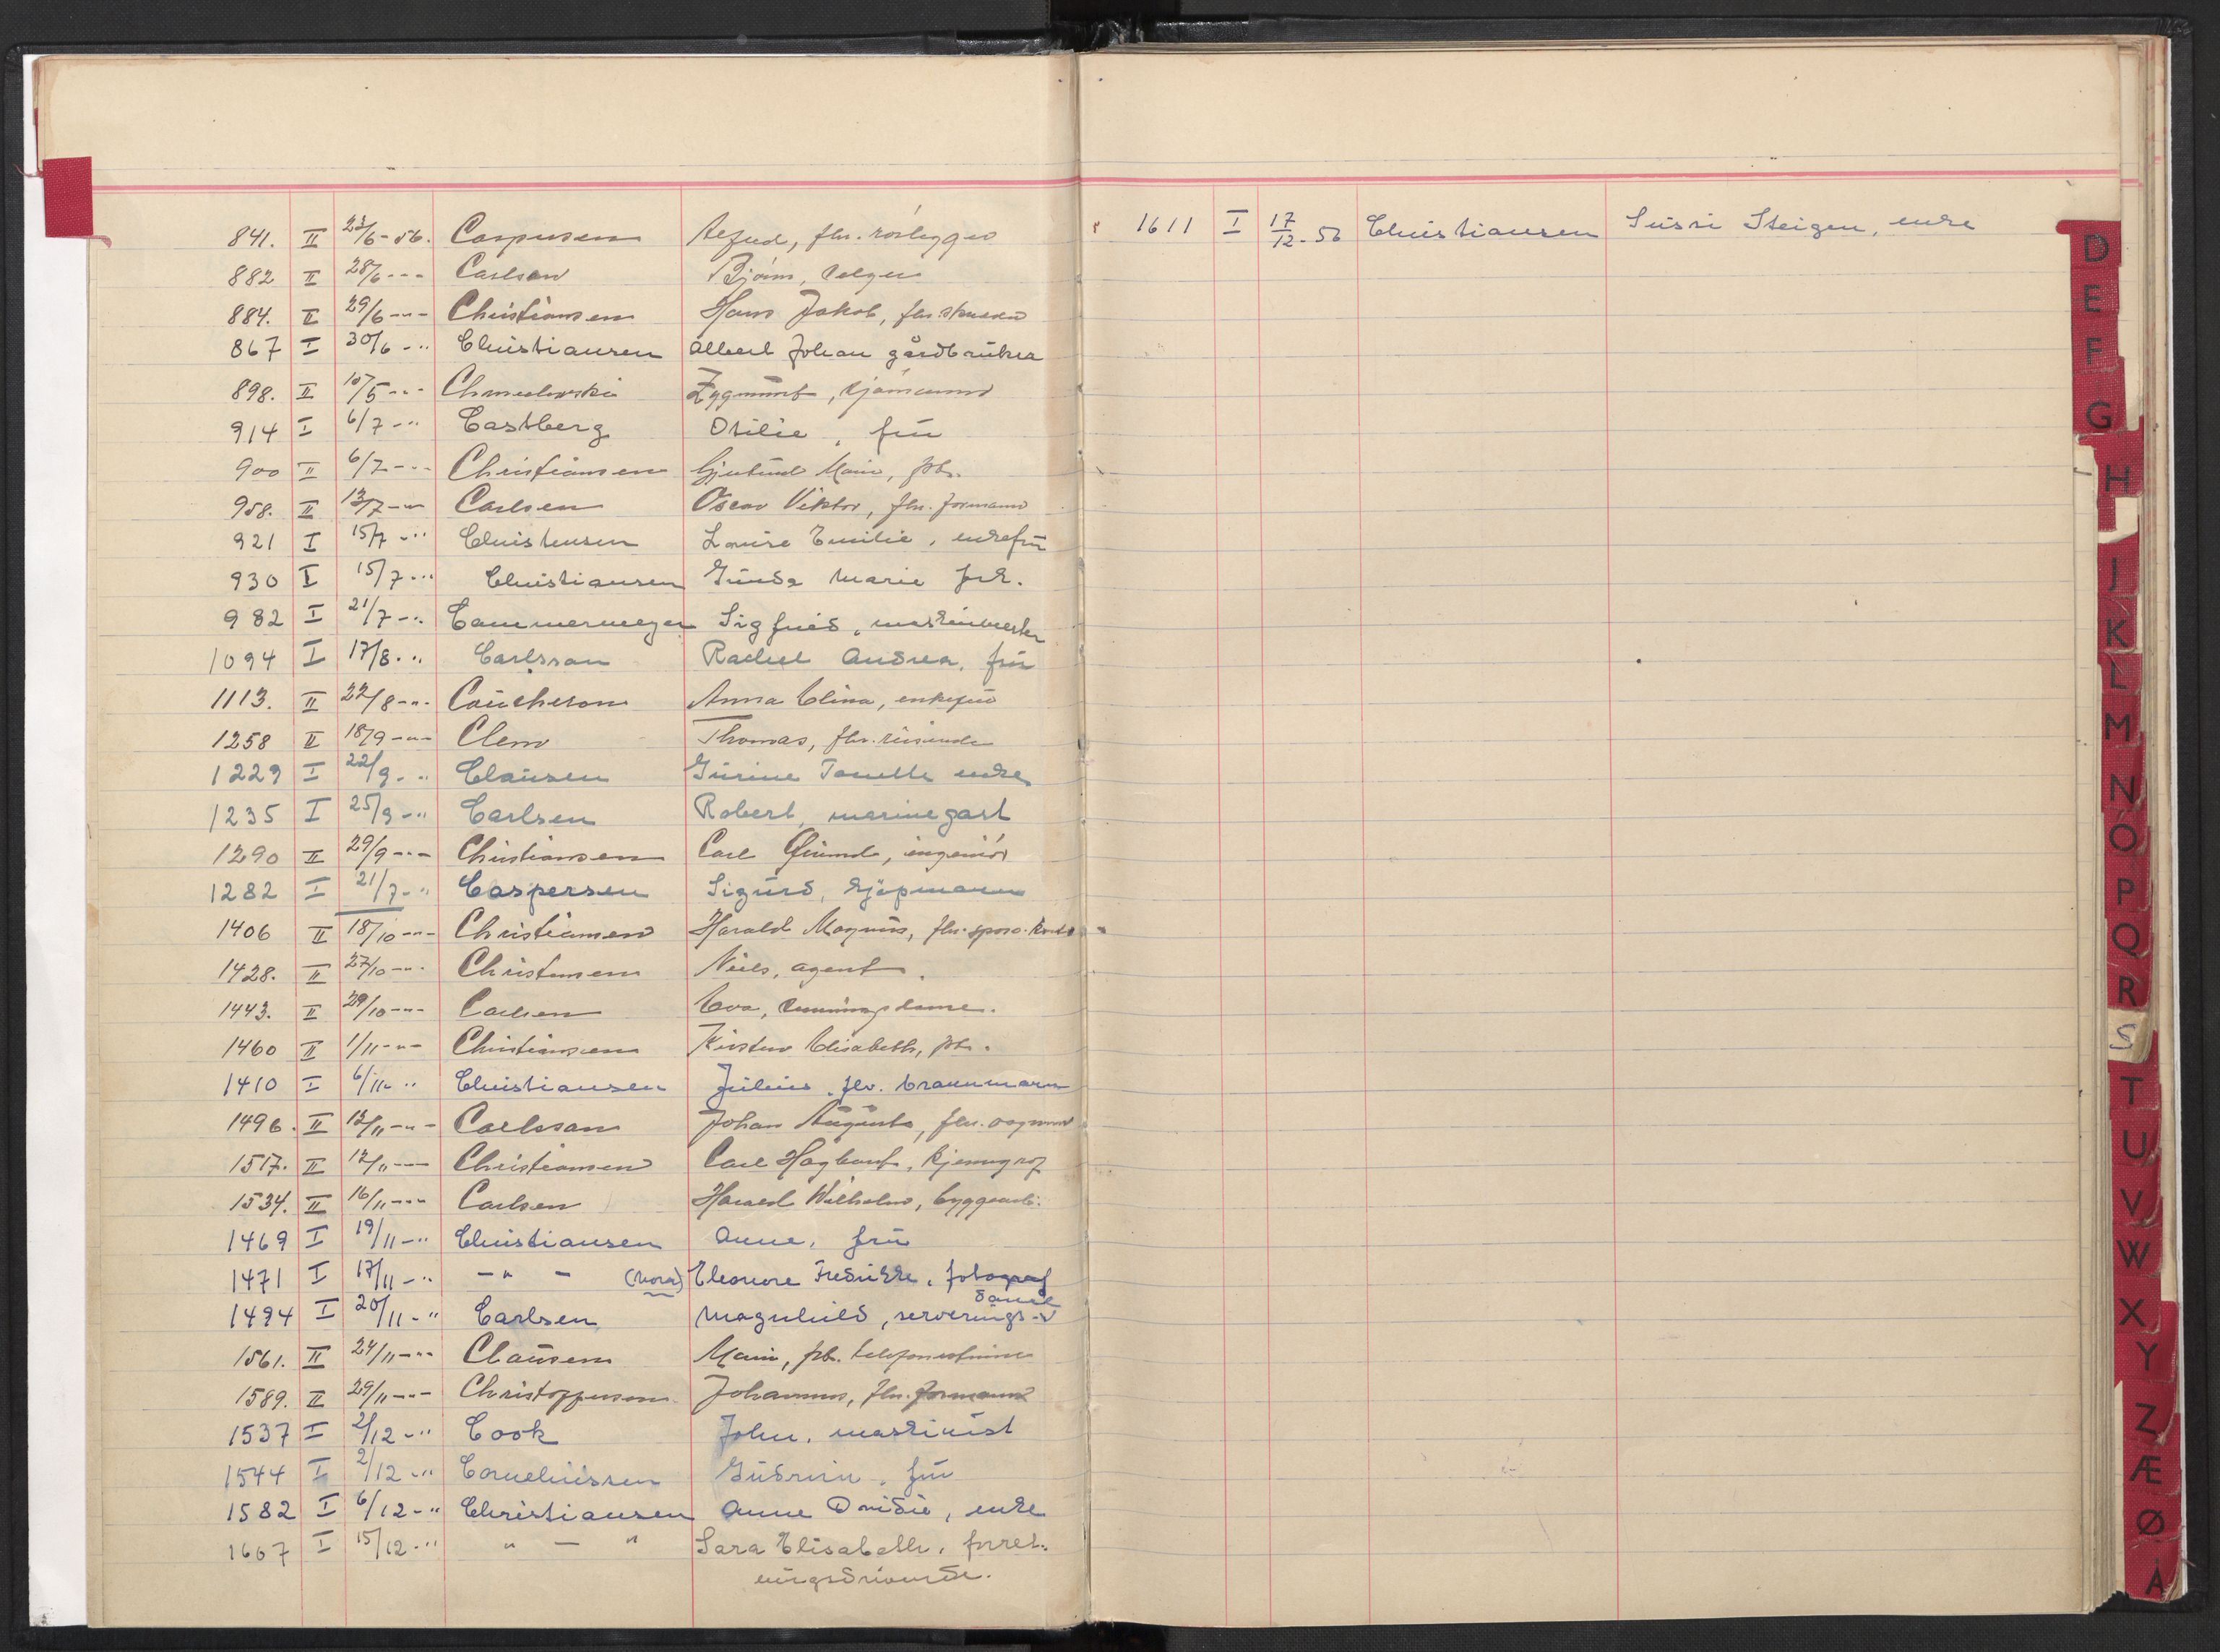 841. II 23/6-56. Caspersen Alfred, fhv. rørlegger
882 II 28/6 -"- Carlsen Bjørn, selger
884. II 29/6 -"- Christiansen Hans Jakob, fhv.
867 I 30/6 -" Christiansen Albert Johan gårdbruker
898. II 10/5 -"- Zygmunt, sjømann
914 I 6/7 -" Castberg Otilie, frü
900 II 6/7 -"- Christiansen Gjertrud Marie, frk.
958. II 13/7 -"- Carlsen Oscar Viktor, fhv. formann
921 I 15/7 -" Christensen Louise Emilie, enkefrü
930 I 15/7 -" Christiansen Marie frk.
982 I 21/7 -" Cammermeyer Sigfried, maskinmester
1094 I 17/8 -" Carlsson Rachel Andrea, frü
1113. II 22/8 -"- Coücheron Anna Elina, enkefrü
1258 II 18/9 -"- Clem Thomas, fhv. reisende
1229 I 22/9 -" Claüsen Gürine Tomelle enke
1235 I 25/9 -" Carlsen Robert, marinegast
1290 II 29/9 -"- Christiansen Carl ingeniør
1282 I 21/7 -" Caspersen Sigürd, kjøpmann
1406 II 18/10 -"- Christiansen Harald Magnüs, fhv.
1428. II 27/10 -"- Christensen Niels, agent.
1443. II 29/10 -"- Carlsen Eva,
1460 II 1/11 -"- Christiansen Kirsten Elisabeth, frk.
1410 I 6/11 -" Christiansen Jülius, fhv. brannmann
1496. II 13/11 -"- Carlsson Johan Aügüst, fhv.
1517. II 12/11 -"- Christiansen Carl Hagbart, kjemigraf
1534. II 16/11 -"- Carlsen Harald Wilhelm, byggearb.
1469 I 19/11 -" Christiansen Anne, frü
1471 I 17/11 -" -"- (Nora) Eleonore Fredrikke, fotograf
1494 I 20/11 -" Carlsen Magnhild, serverings-dame
1561. II 24/11 -"- Claüsen Marie, frk. telefonistinne
1589. II 29/11 -"- Christoffersen Johannes, fhv. formann
1537 I 2/12 -" Cook John, maskinist
1544 I 2/12 -" Corneliüssen Güdrün, frü
1582 I 6/12 -" Christiansen Anne Ovidie, enke
1607 I 15/12 -" " - " Sara Elisabeth, forret-
ningsdrivende.
1611 I 17/12-56 Christiansen Süsri Steigen, enke
D
E
F
G
H
J
K
L
M
N
O
P
Q
R
S
T
U
V
W
X
Y
Z
Æ
Ø
Å